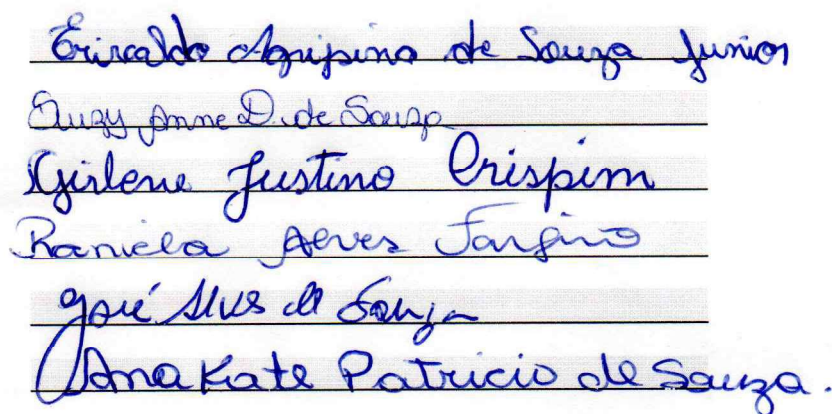 Erivaldo Agripino de Souza Junior
Suzy Anne D. de Souza
Girlene Justino Crispim
Raniela Alves Targino
José Alves de Souza
Ana Kate Patricio de Souza.